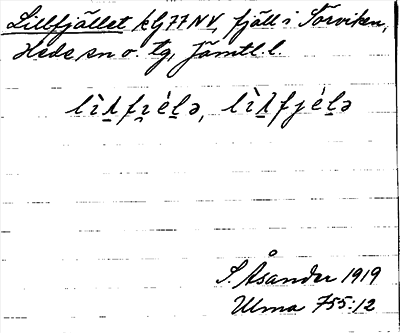 Lillfjället kG77NV, fjäll i Torviken,
Hede sn o. tg, Jämtl. l.
lìl̠fi̯él̠ə, lìl̠fjél̠ə
S. Åsander 1919
Ulma 755:12